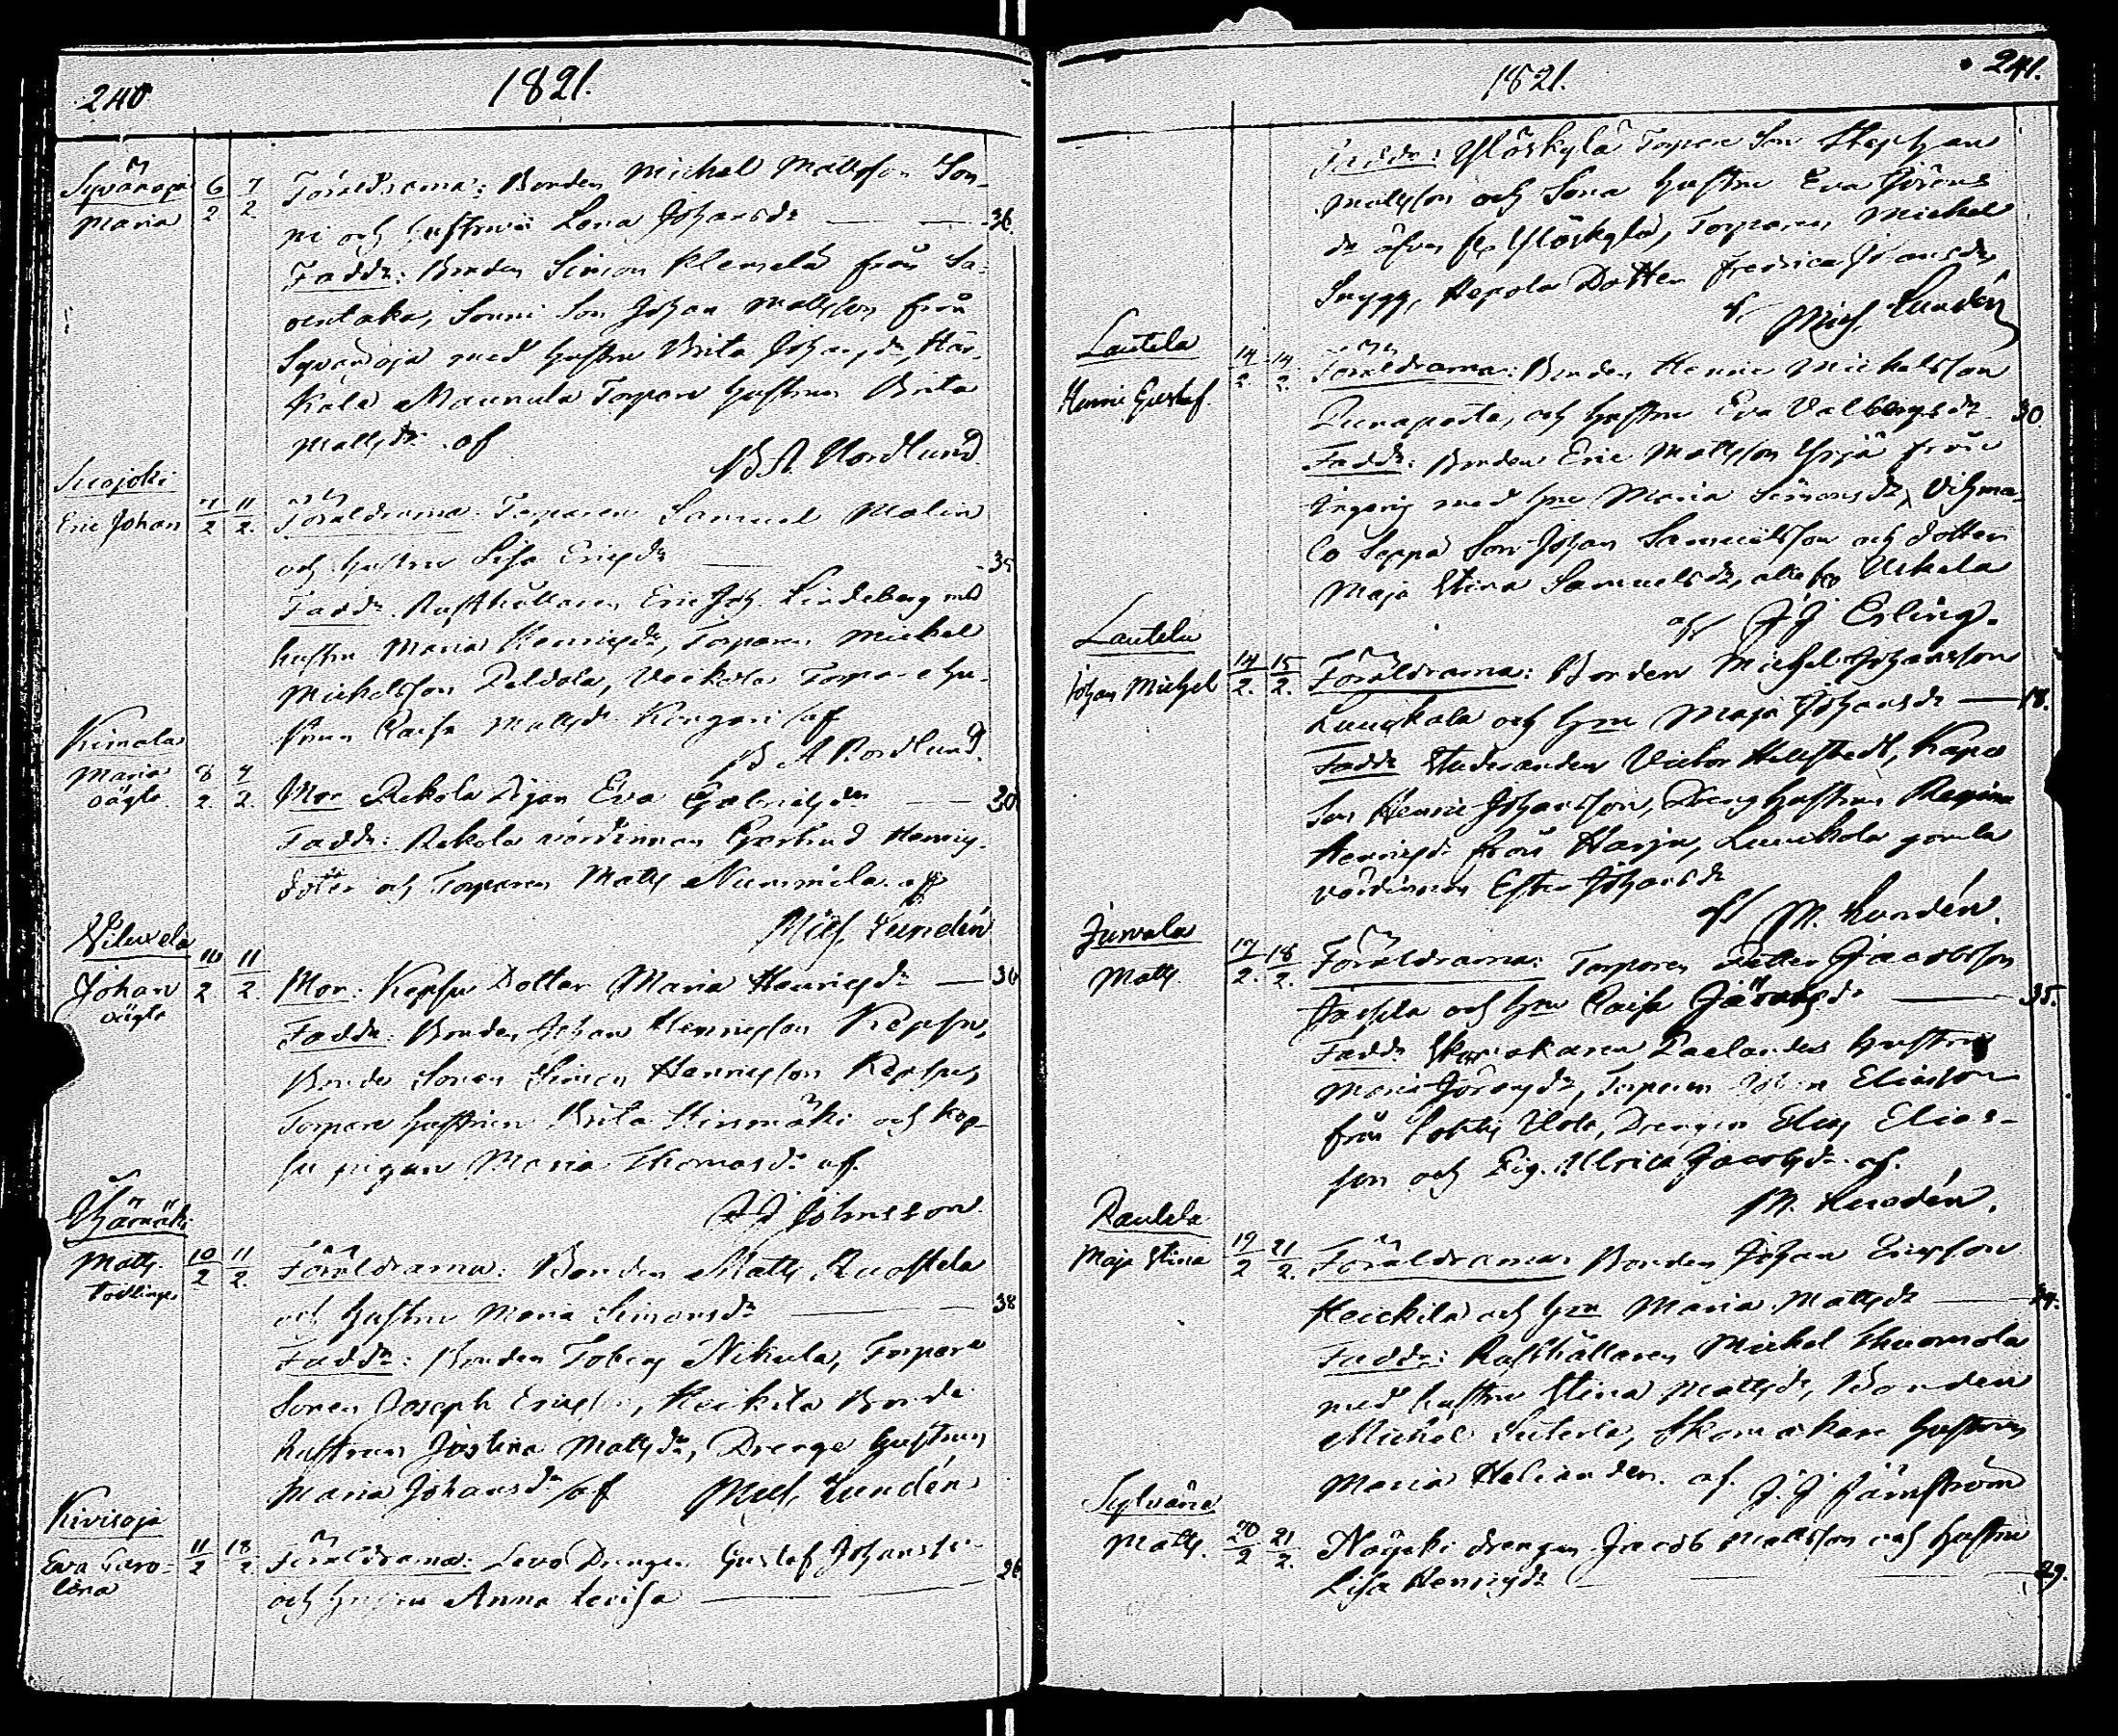 240
1821.
Syvänoja
Maria
6/2 7/2
Föräldrarna: Bonden Michel Mattsson Son-
ni och hustrun Lena Johansdr — 36.
Faddr: Bonden Simon Klemelä från Sa-
ventaka, Sonni Son Johan Mattsson från
Syvänoja med hustru Brita Johansdr, Här-
kälä Maunula Torpare hustrun Brita
Mattsdr. af
B A Nordlund
Suojoki
Eric Johan
7/2 11/2.
Föräldrarna: Torparen Samuel Malin
och hustru Lisa Ericsdr — 35
Faddr. Rusthållaren Eric Joh. Lindeberg med
hustru Maria Henricsdr, Torparen Michel
Michelsson Peldola, Torpare hu-
strun Caisa Mattsdr af
B A Nordlund
Kimala
Maria
oägta
8/2. 9/2.
Mor Rekola Pigan Eva Gabrielsdr — 30
Faddr: Rekola värdinnan Gertrud Henrics-
dotter och Torparen Matts Nummila. af
Mich. Lundén
Viluxela
Johan
oägta
10/2 11/2.
Mor: Kepsu Dotter Maria Henricsdr — 36
Faddr: Bonden Johan Henricsson Kepsu,
Bonde Sonen Simon Henricsson Kepsu,
Torpare hustrun Brita Hinmäki och Kep-
su pigan Maria Thomasdr af.
J J Johnsson.
Matts
tvilling
10/2 11/2.
Föräldrarna: Bonden Matts Ruostela
och hustru Maria Simonsdr — 38
Faddr: Bonden Tobias Nikula, Torpare
Sonen Joseph Ericsson, Heikilä Bonde
hustrun Justina Mattsdr, Drenge hustrun
Maria Johansdr/af Mich. Lundén
Kivisoja
Eva Caro-
lina
11/2 18/2
Föräldrarna: Lavo Drengen Gustaf Johansson
och hustru Anna Lovisa — 26
241.
1821.
Faddr: Yläskylä Torpare Son Stephan
Mattsson och Sona hustru Eva Jörans
dr äfven fr. Yläskylä, Torparen Michel
Snygg, Kepola Dotter Fredrica Johansdr
af Mich. Lundén
Lautela
Henric Gustaf.
14/2. 14/2.
Föräldrarna: Bonden Henric Michelsson
och hustru Eva Valbergsdr 30.
Faddr: Bonden Eric Mattsson Yrjä från
Ingeris med hru Maria Simonsdr, Vihma-
lo Seppä Son Johan Samuelsson och dotter
Maja Stina Samuelsdr, alla fr Uskela
af J J Erling.
Lautela
Johan Michel
14/2. 15/2.
Föräldrarna: Bonden Michel Johansson
Luuskala och hru Maja Johansdr — 18.
Faddr Studeranden Victor Hellstedt,
Son Henric Johansson, Dreng hustrun Regina
Henricsdr från Harju, Luuskala gamla
värdinnan Ester Johansdr
af M. Lundén.
Jurvala
Matts
17/2. 18/2.
Föräldrarna: Torparen Petter Jacobsson
och hru Caisa Göransdr — 35.
Faddr Skomakaren Paelanders hustru
Maria Göransdr, Torparen Johan Eliasson
från Drengen Elias Elias-
son och Pig. Ulrica Jacobsdr. af.
M. Lundén.
Rautela
Maja Stina
19/2 21/2.
Föräldrarna: Bonden Johan Ericsson
Heickilä och hru Maria Mattsdr — 34.
Faddr: Rusthållaren Michel Thuomola
med hustru Stina Mattsdr, Bonden
Michel Suterla, Skomakare hustrun
Maria Helianders. af. J. J Järnström
Sylvänä
Matts.
20/2 21/2.
drengen Jacob Mattsson och hustru
Lisa Henricsdr — 29.